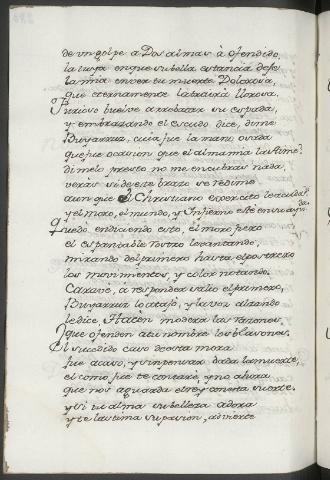 de vn golpe a Dos almas à ofendido,
la tuya en que su bella estancia
la mia en ver tu muerte Dolorosa,
que eternamente la traira llorosa,
Furioso buelve a arrebatar su espada,
y embrazando el escudo dice, dime
Buyarruz, cuia fue la mano osada
que fue ocasion que el alma mia
dimelo presto no me encubras nada,
veras si deste brazo se redime
aunque el Christiano exercito le acuda
y el moro, el mundo, y Infierno esté en su ayuda.
Quedò en diciendo esto, el moro fiero
el espantable rostro levantando,
mirando del primero hasta el postrero
los movimientos, y color notando.
a responder salio el primero,
Buyarruz lo atajò, y la voz alzando
le dice, Hacèn modera las razones,
que ofenden a tu nombre los blasones.
El sucedido caso de esta mora
fue acaso, y sin pensar dada la muerte,
el como fue te contarè, y no ahora
que nos aguarda el rey con esta suerte.
y si tu alma su belleza adora
y te lastima su pasion, advierte